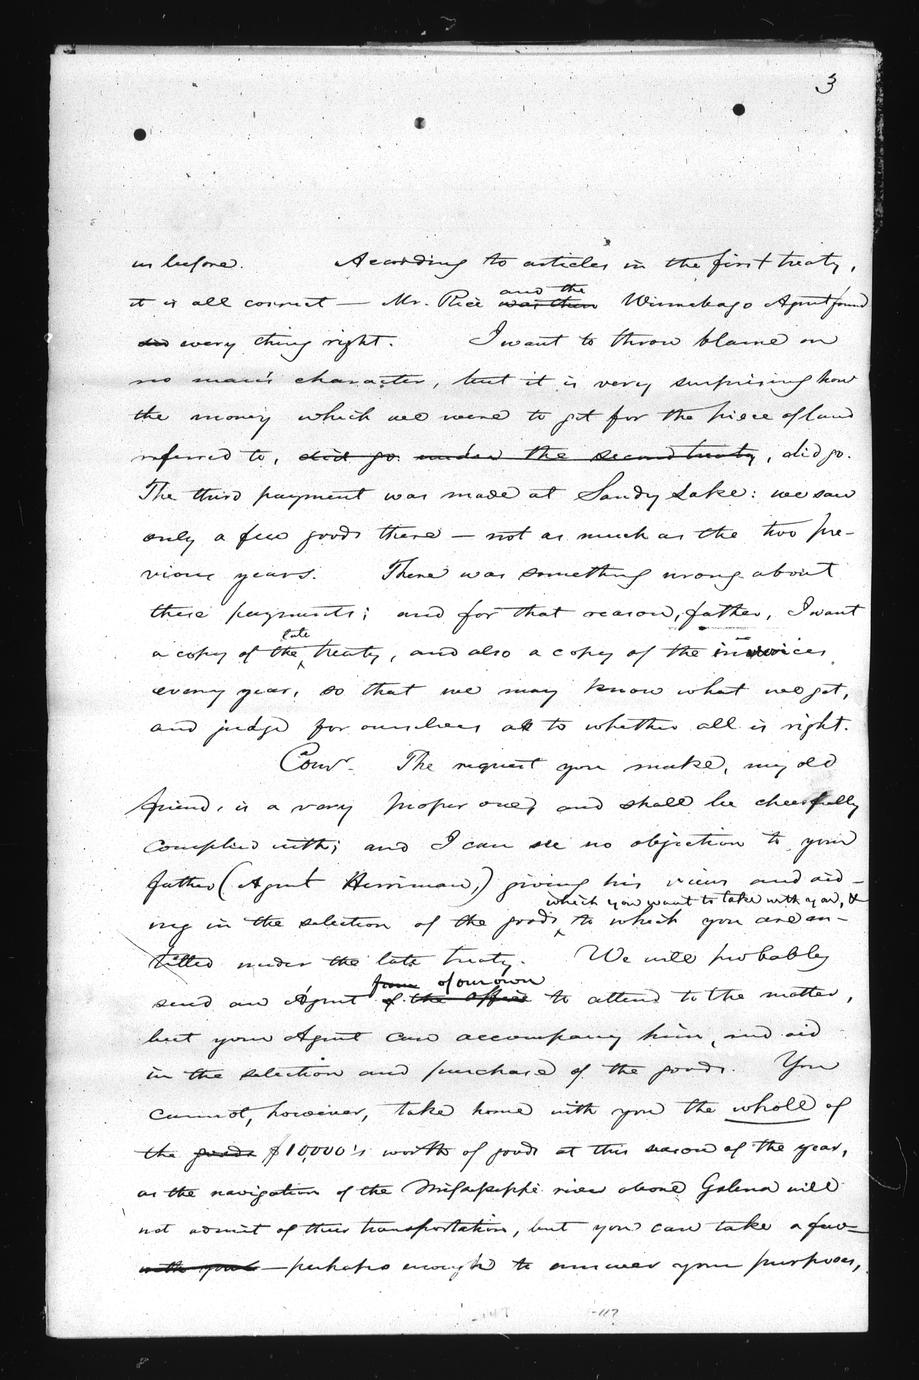 3
us before. According to articles in the first treaty,
it is all correct — Mr. Rice and the was then Winnebago Agent found
every thing right. I want to throw blame on
no man's character, but it is very surprising how
the money which we were to get for the piece of land
referred to, did go under the second treaty, did go.
The third payment was made at Sandy Lake: we saw
only a few goods there — not as much as the two pre-
vious years. There was something wrong about
these payments; and for that reason, father, I want
a copy of the late treaty, and also a copy of the invoices
every year, so that we may know what we get,
and judge for ourselves as to whether all is right.
Comr. The request you make, my old
friend, is a very proper one, and shall be cheerfully
complied with; and I can see no objection to your
father (Agent Herriman,) giving his views and aid-
ing in the selection of the goods which you want to take with you, & to which you are en-
titled under the late treaty. We will probably
send an Agent from of our own of the office to attend to the matter,
but your Agent can accompany him, and aid
in the selection and purchase of the goods. You
cannot, however, take home with you the whole of
the goods $10,000's worth of goods at this season of the year,
as the navigation of the Mississippi river above Galena will
not admit of their transportation, but you can take a few
with you — perhaps enough to answer your purposes,
117